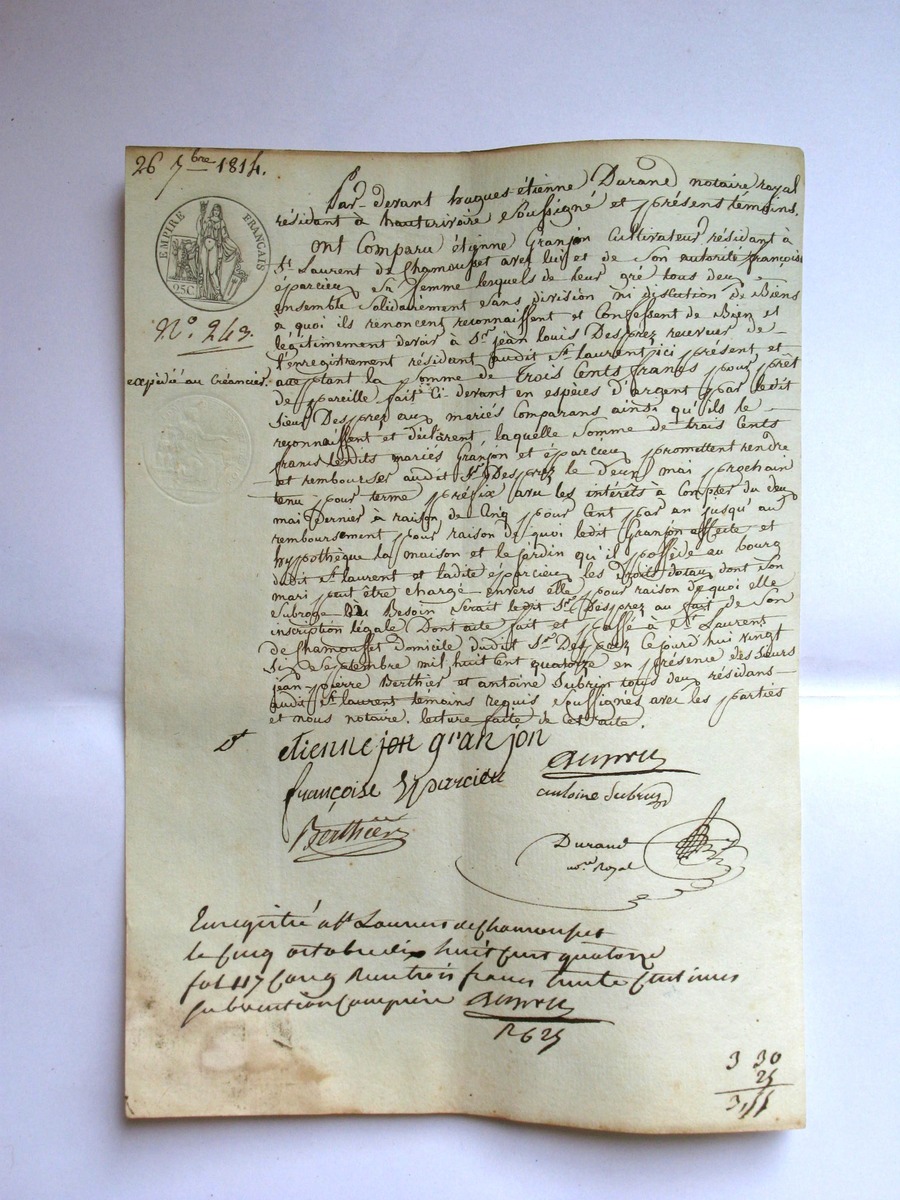 26 7bre 1814.
EMPIRE FRANÇAIS
25C
N° 243.
expédié au Créancier
Par devant hugues étienne Durand notaire royal
résidant à hauterivoire soussigné et présent témoins.
ont Comparu étienne Granjon Cultivateur résidant à
St Laurent de Chamousset avec luy et de son autorité françoise
éparcieu sa femme lesquels de leur gré tous deux
ensemble solidairement sans division ni discution de Biens
a quoi ils renoncent reconnaissent et Confessent de Bien et
légitimement devoir à Sr jean louis Desprez receveur de
l'enregistrement résidant audit St laurent ici présent et
acceptant la somme de Trois Cents francs pour prêt
de pareille fait Ci-devant en espèces d'argent par ledit
sieur Desprez aux mariés Comparans ainsi qu'ils le
reconnaissent et déclarent, laquelle somme de trois Cents
francs lesdits mariés Granjon et éparcieu promettent rendre
et rembourser audit Sr Desprez le deux mai prochain
tenu pour terme préfix avec les intérêts à Compter du deux
mai dernier à raison de Cinq pour Cent par an jusqu'au
remboursement pour raison de quoi ledit Granjon affecte et
hypothèque la maison et le jardin qu'il possède au bourg
dudit St laurent et ladite éparcieu les droits dotaux dont son
mari peut être chargé envers elle pour raison de quoi elle
subroge Besoin serait ledit Sr Desprez au fait de son
inscription légale Dont acte fait et passé à St Laurent
de Chamousset domicile dudit Sr Desprez Cejourd'hui vingt
six septembre mil huit Cent quatorze en présence des sieurs
jean pierre Berthier et antoine Subrin tous deux résidans
audit St laurent témoins requis soussignés avec les parties
et nous notaire. lecture faite de cet acte.
etienne jon granjon
françoise Eparcieu
antoine subrin
Berthier
Durand
nore Royal
Enregistré a St Laurent de Chamousset
le Cinq octobre dix huit Cent quatorze
fol 117 Reçu trois francs trente Centimes
subvention Comprise
R 625
3 30
25
3,55